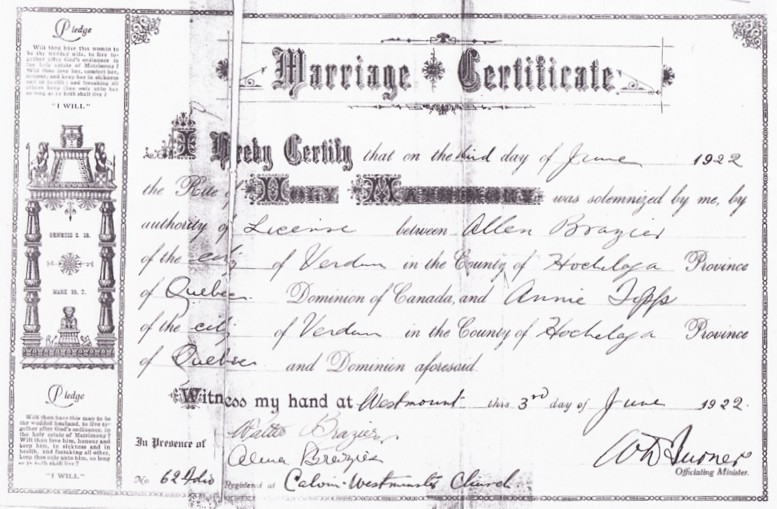 Pledge
Wilt thou have this woman to
be thy wedded wife, to live to-
gether after God's ordinance in
the holy estate of Matrimony?
Wilt thou love her, comfort her,
honour, and keep her in sickness
and in health; and forsaking all
others keep thee only unto her
so long as ye both shall live?
"I WILL"
GENESIS 2. 18.
MARK 10. 7.
Pledge
Wilt thou have this man to be
thy wedded husband, to live to-
gether after God's ordinance, in
the holy estate of Matrimony?
Wilt thou love him, honour and
keep him, in sickness and in
health, and forsaking all other,
keep thee only unto him, so long
as ye both shall live?
"I WILL"
Marriage Certificate
I Hereby Certify that on the third day of June 1922
the Rite of Holy Matrimony was solemnized by me, by
authority of License between Allen Brazier
of the city of Verdun in the County of Hochelaga Province
of Quebec Dominion of Canada, and Annie Tipps
of the city of Verdun in the County of Hochelaga Province
of Quebec and Dominion aforesaid.
Witness my hand at Westmount this 3rd day of June 1922.
In Presence of Brazier
Alma Brazier
Turner
Officiating Minister.
No 62 Folio Registered at Calvin-Westminster Church